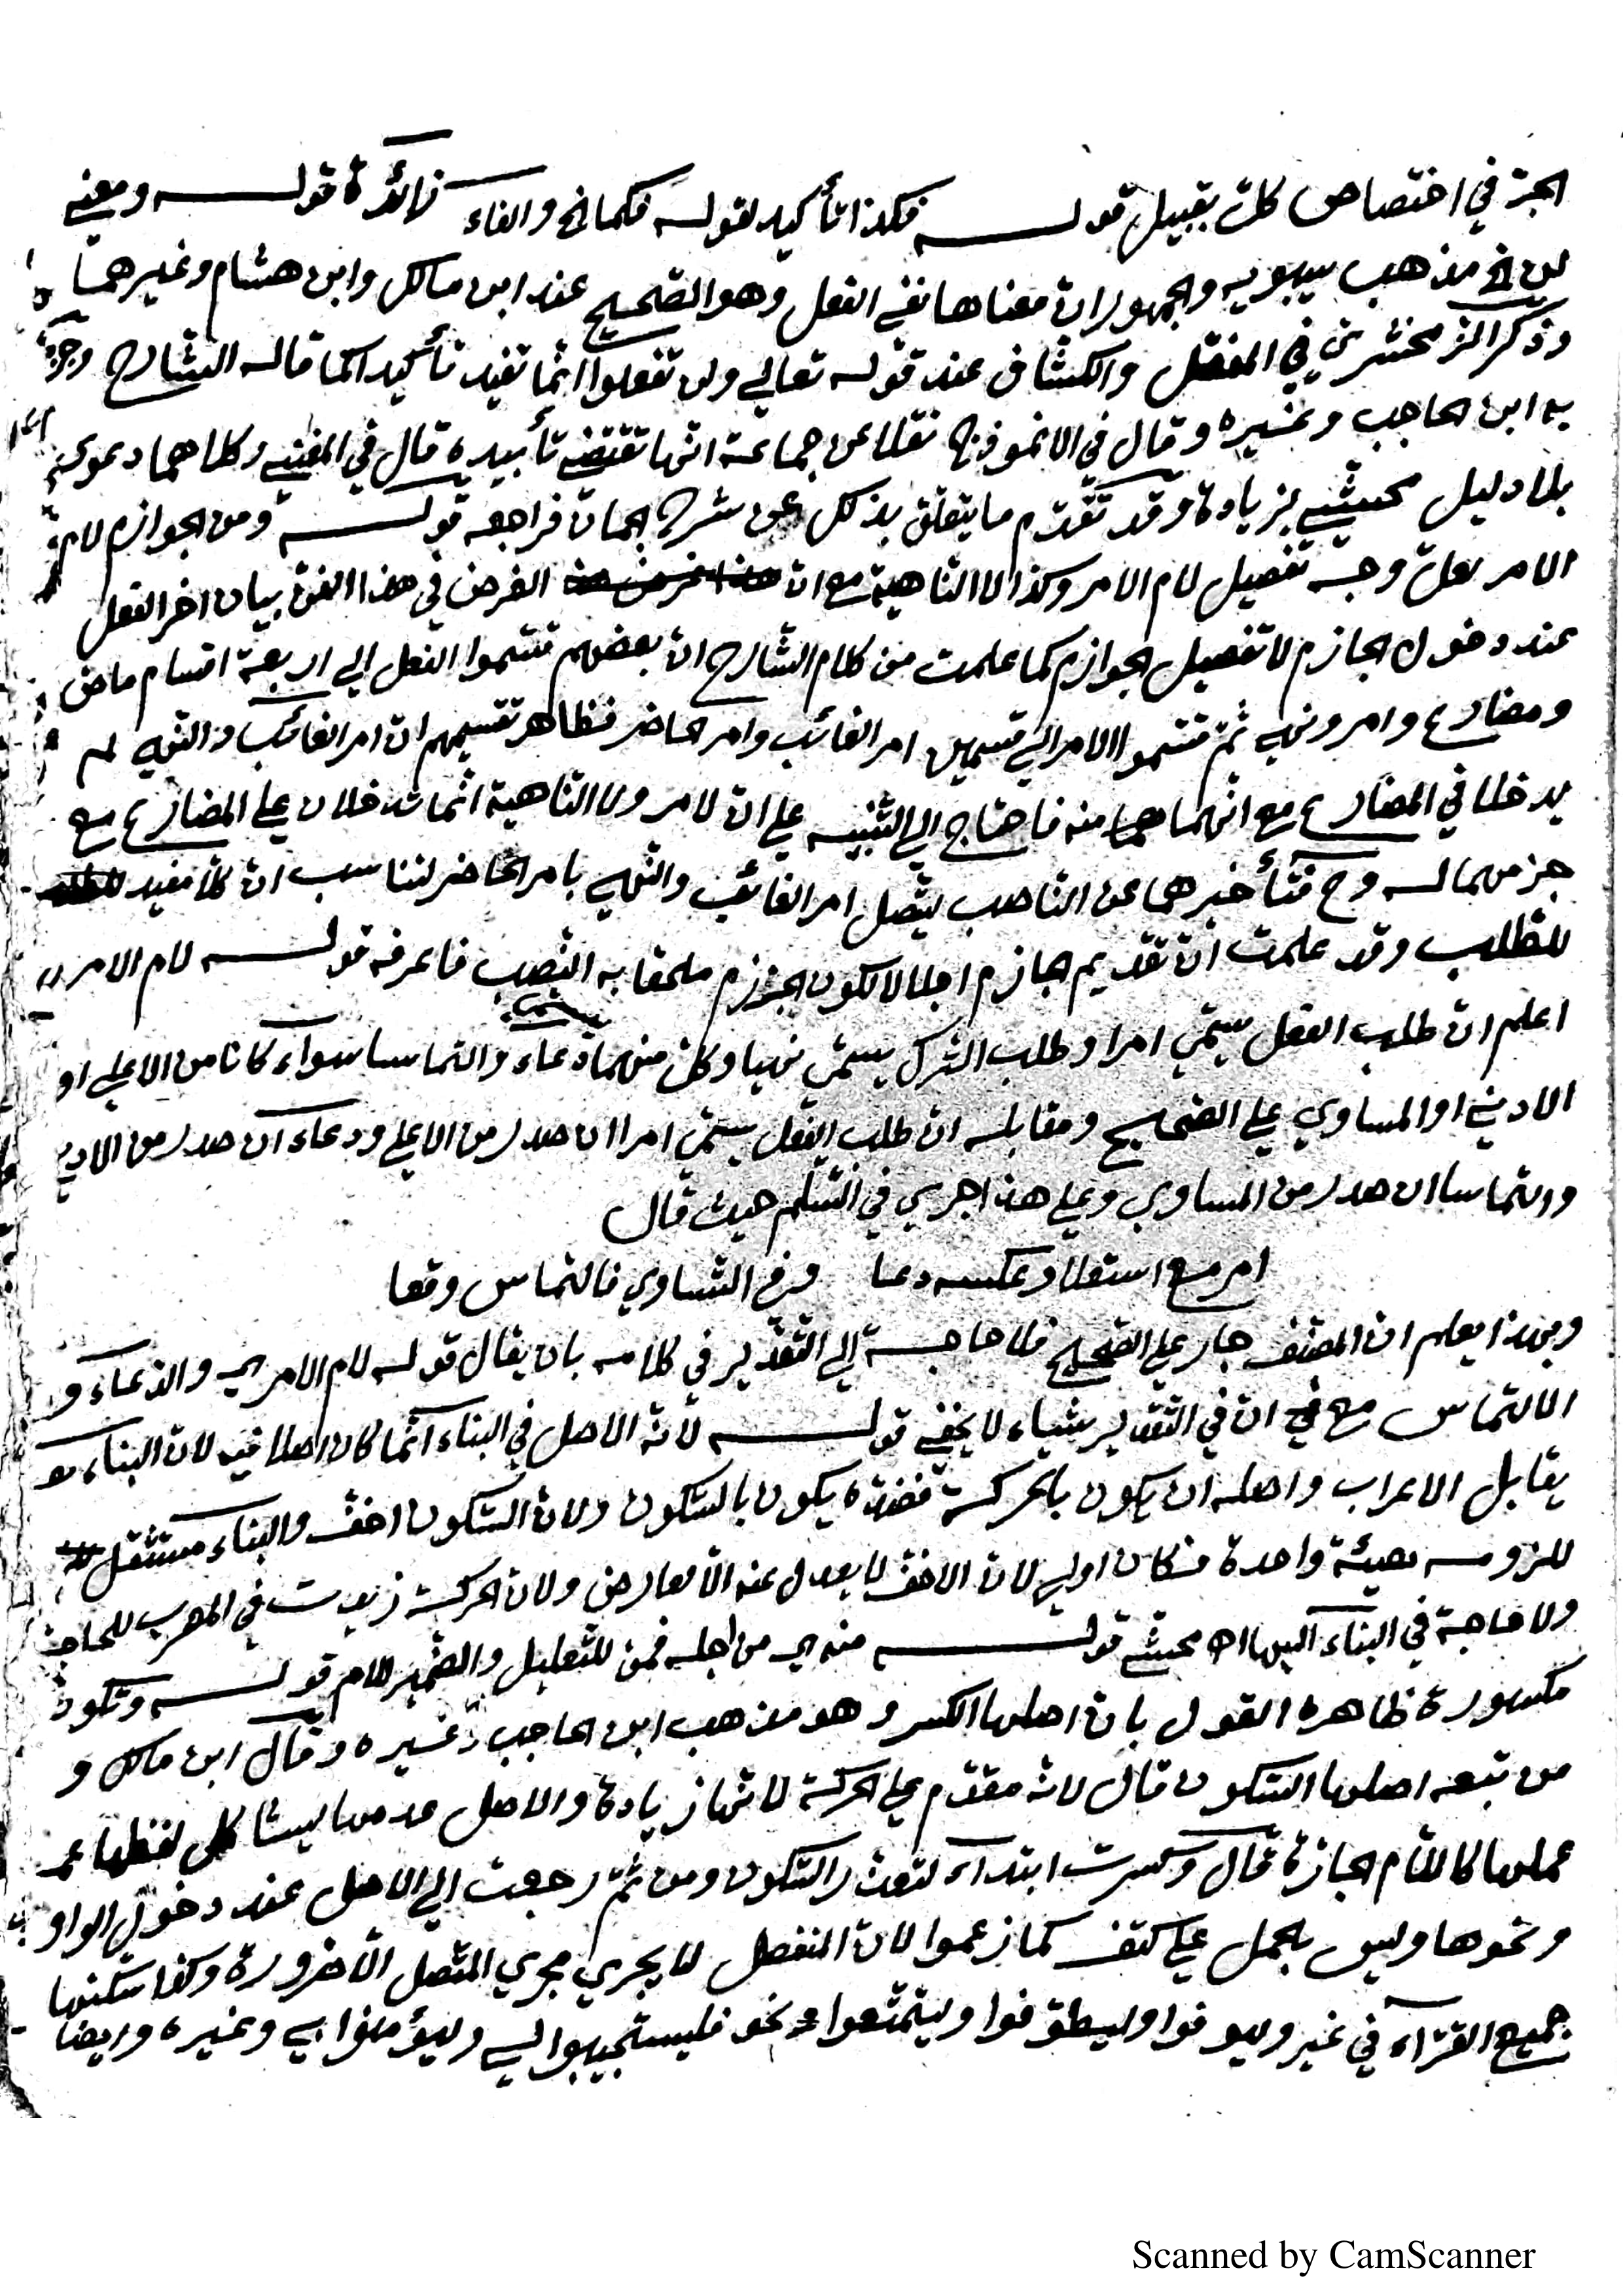 الجزّ في اختصاص كلّ بقبيل قوله فكذا تأكيد لقوله فكما الخ والفاء زائدة قوله ومعنى
لن الخ مذهب سيبويه والجمهور انّ معناها نفي الفعل وهو الصّحيح عند ابن مالك وابن هشام وغيرهما
وذكر الزمخشري في المفصّل والكشّاف عند قوله تعالى ولن تفعلوا انّما تفيد تأكيدا كما قاله الشارح وجرى
به ابن الحاجب وغيره وقال في الانموذج نقلا عن جماعة انّها تقتضي تأبيده قال في المغني وكلاهما دعوى
بلا دليل محشّي بزيادة وقد تقدّم ما يتعلّق بذلك عن شرح الجان فراجعه قوله ومن الجوازم لام
الامر لعلّ وجه تفصيل لام الامر وكذا لا النّاهية مع انّ الغرض في هذا الفنّ بيان اخر الفعل
عند دخول الجازم لا تفصيل الجوازم كما علمت من كلام الشّارح انّ بعضهم قسّموا الفعل الى اربعة اقسام ماض
ومضارع وامر ونهي ثمّ قسّموا الامر الى قسمين امر الغائب وامر الحاضر فظاهر تقسيمهم انّ امر الغائب والنّهي لم
يدخلا في المضارع مع انّهما منه فاحتاج الى التّنبيه على انّ لام الامر ولا النّاهية انّما تدخلان على المضارع مع
جزمهما له وح فتأخيرهما عن النّاصب ليتّصل امر الغائب والنّهي بامر الحاضر لتناسب انّ كلّا مفيد
للطّلب وقد علمت انّ تقديم جازم اجلالا لكون الجزم ملحقا به النّصب فاعرفه قوله لام الامر
اعلم انّ طلب الفعل يسمّى امرا وطلب التّرك يسمّى نهيا وكلّ منهما دعاء والتماسا سواء كانا من الاعلى او
الادنى او المساوي على الصّحيح ومقابله انّ طلب الفعل يسمّى امرا ان صدر من الاعلى ودعاء ان صدر من الادنى
والتماسا ان صدر من المساوي وعلى هذا جرى في السّلّم حيث قال
امر مع استعلا وعكسه دعا وفي التّساوي فالتماس وقعا
وبهذا يعلم انّ المصنّف جار على الصّحيح فلا حاجة الى التّقدير في كلامه بان يقال قوله لام الامر اي والدّعاء و
الالتماس مع انّ في التّقدير شياء لا يخفى قوله لانّه الاصل في البناء انّما كان اصلا فيه لانّ البناء
يقابل الاعراب واصله ان يكون بالحركة فضدّه يكون بالسّكون ولانّ السّكون اخفّ والبناء مستثقل
للزومه هيئة واحدة فكان اولى لانّ الاخفّ لا يعدل عنه الّا لعارض ولانّ الحركة زيدت في المعرب للحاجة
ولا حاجة في البناء اليها اه محشّي قوله منه اي من اجله فمن للتّعليل والضّمير للام قوله وتكون
مكسورة ظاهره القول بانّ اصلها الكسر وهو مذهب ابن الحاجب وغيره وقال ابن مالك و
من تبعه اصلها السّكون قال لانّه مقدّم على الحركة لانّها زيادة والاصل عدمها ليشاكل لفظها
عملها كاللّام الجارّة قال وكسرت ابتداء لتعذّر السّكون ومن ثمّ رجعت الى الاصل عند دخول الواو
ونحوها وليس بحمل على كتف كما زعموا لانّ المنفصل لا يجري مجرى المتّصل الّا ضرورة وكذا سكّنها
جميع القرّاء في غير وليوفوا وليطّوّفوا وليتمتّعوا نحو فليستجيبوا لي وليؤمنوا بي وغيره وايضا